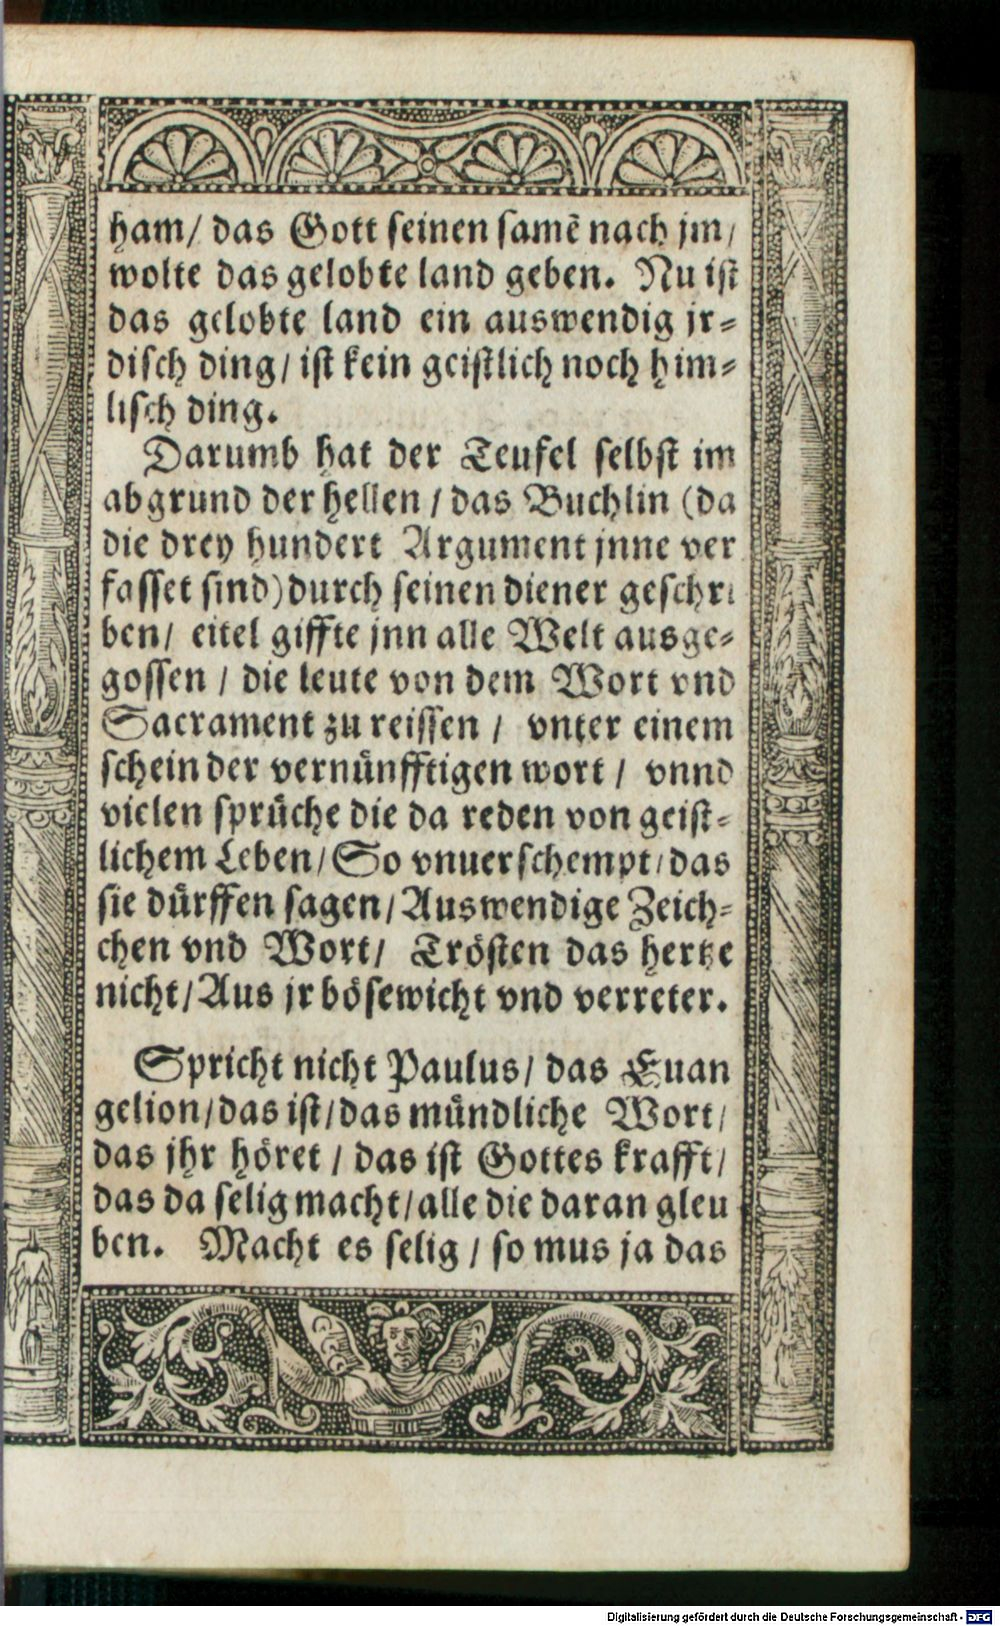 ham/ das Gott seinen samē nach jm/
wolte das gelobte land geben. Nu ist
das gelobte land ein auswendig jr-
disch ding/ ist kein geistlich noch him-
lisch ding.
Darumb hat der Teufel selbst im
abgrund der hellen / das Buchlin (da
die drey hundert Argument jnne ver
fasset sind) durch seinen diener geschri
ben/ eitel giffte jnn alle Welt ausge-
gossen / die leute von dem Wort vnd
Sacrament zu reissen / vnter einem
schein der vernünfftigen wort / vnnd
vielen sprüche die da reden von geist-
lichem Leben/ So vnuerschempt/ das
sie dürffen sagen/ Auswendige Zeich-
chen vnd Wort/ Trösten das hertze
nicht/ Aus jr bösewicht vnd verreter.
Spricht nicht Paulus/ das Euan
gelion/ das ist/ das mündliche Wort/
das jhr höret / das ist Gottes krafft/
das da selig macht/ alle die daran gleu
ben. Macht es selig / so mus ja das
Digitalisierung gefördert durch die Deutsche Forschungsgemeinschaft - DFG